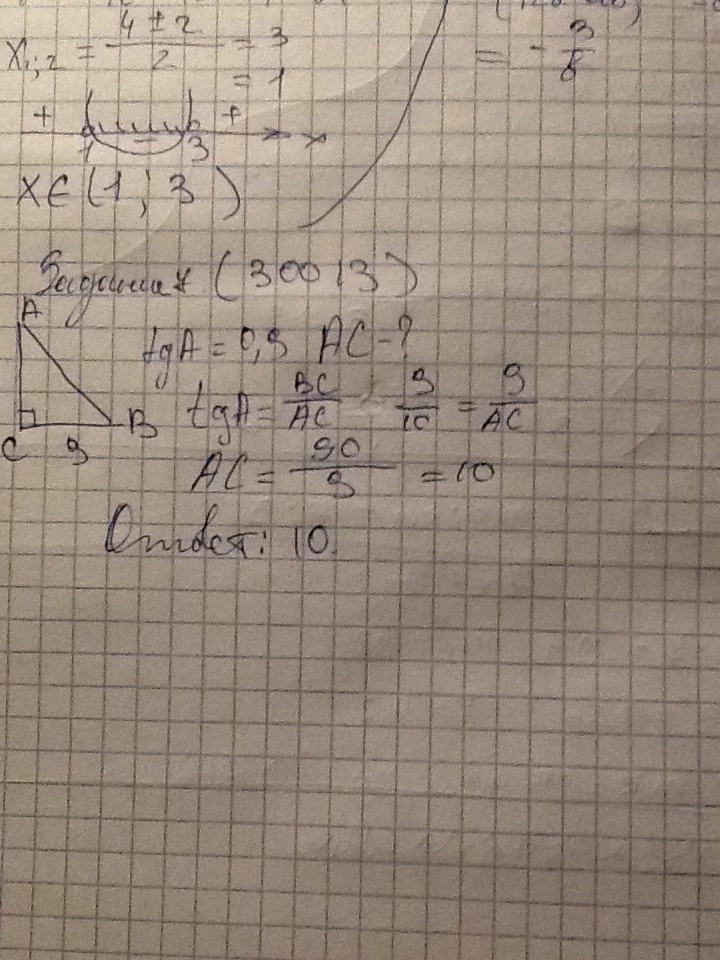 X₁;₂ = (4 ± 2)/2 = 3
= 1
= - 3/8
+ - + x
1 3
x ∈ (1; 3)
Задание (30013)
A
C 9 B
tgA = 0,9 AC - ?
tgA = BC/AC 9/10 = 9/AC
AC = 90/9 = 10
Ответ: 10.